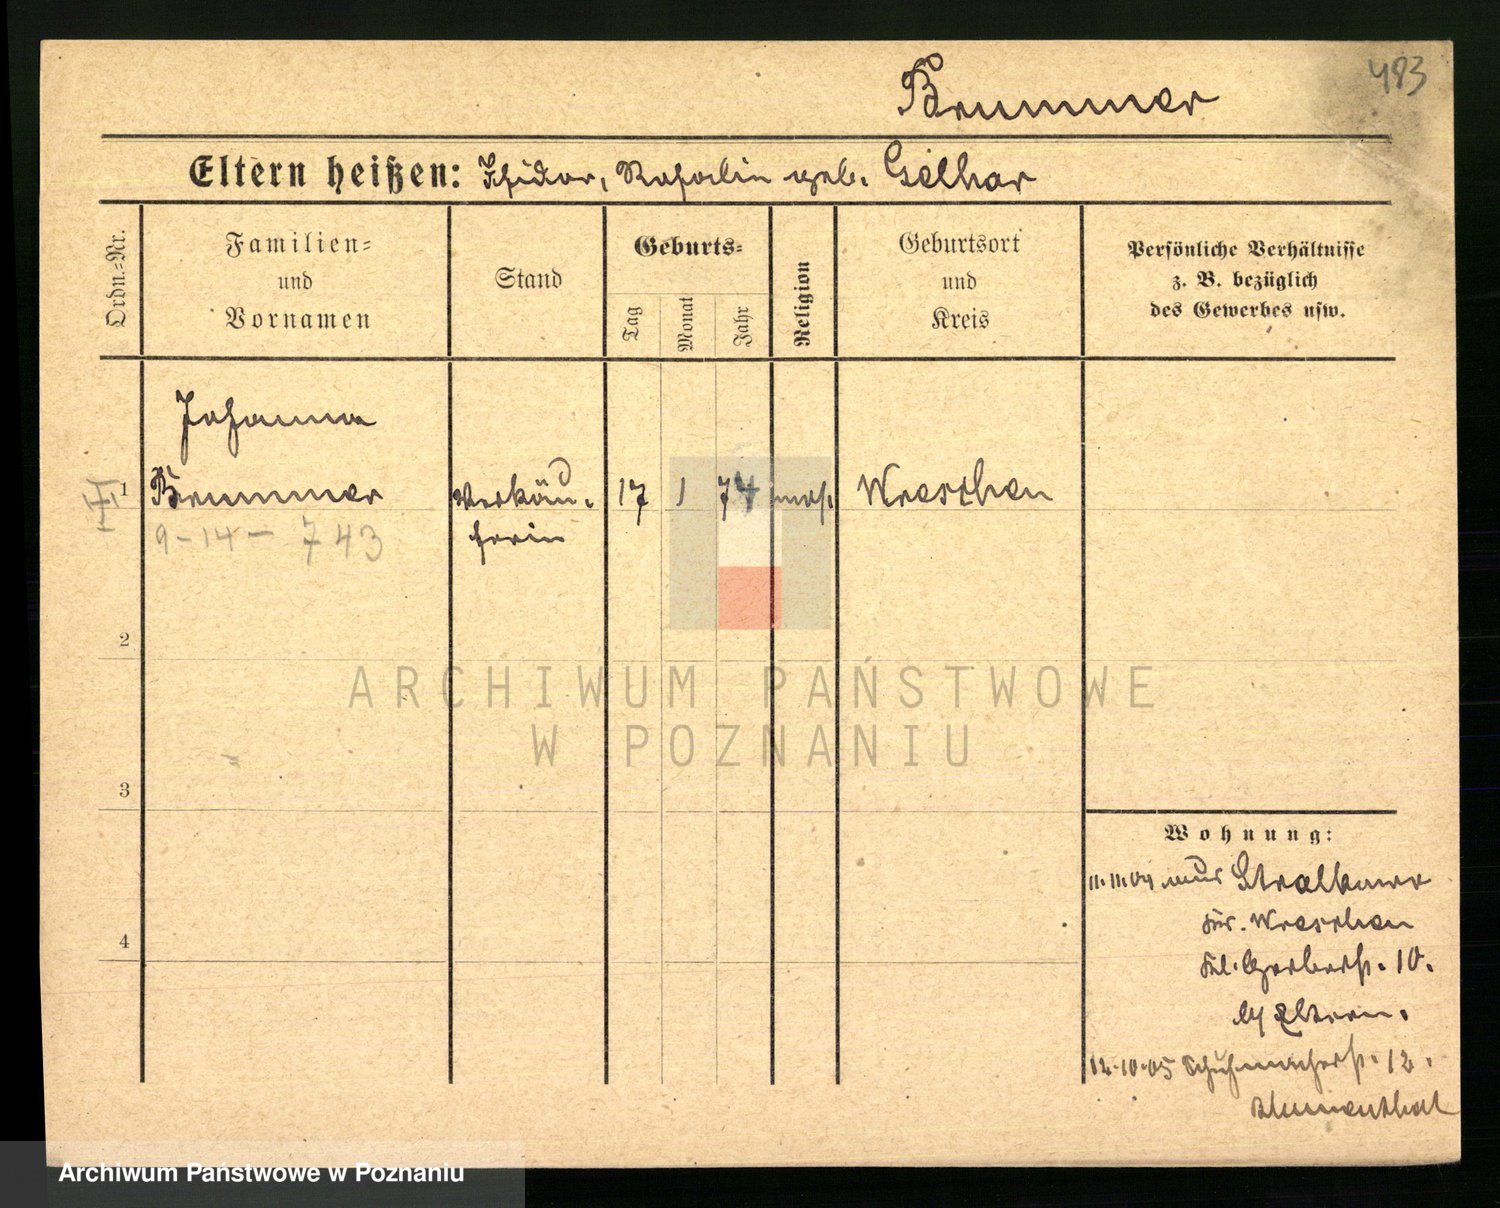 483
Brummer
Eltern heißen: Isidor, Rosalie geb. Gelhar
Ordn.=Nr.
Familien=
und
Vornamen
Stand
Geburts=
Tag
Monat
Jahr
Religion
Geburtsort
und
Kreis
Persönliche Verhältnisse
z. B. bezüglich
des Gewerbes usw.
Johanna
1 Brummer Verkäu- 17 1 74 mos. Wreschen
ferin
9-14- 743
2
3
4
Wohnung:
11.11.04 aus
Wreschen
Gerberst. 10.
Eltern.
12.10.05 Schuhmacherst. 12.
Blumenthal
ARCHIWUM PAŃSTWOWE
W POZNANIU
Archiwum Państwowe w Poznaniu